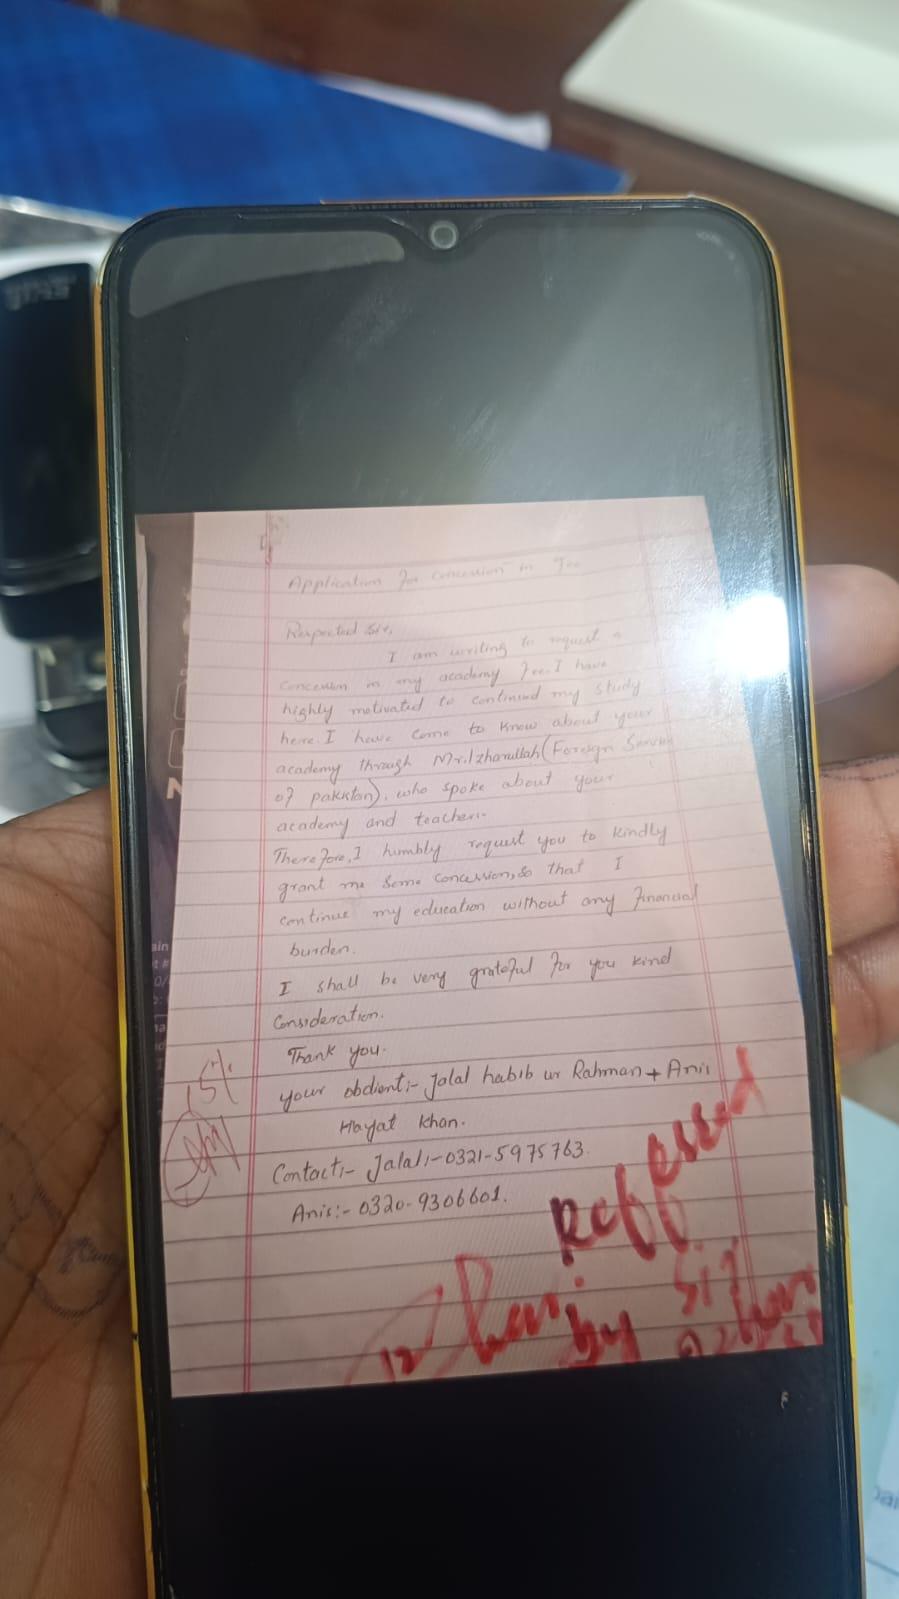 Application for concession in Fee
Respected Sir,
I am writing to request a
concession in my academy fee. I have
highly motivated to continued my study
here. I have come to know about your
academy through Mr. Izharullah (Foreign Service
of pakistan), who spoke about your
academy and teachers.
Therefore, I humbly request you to kindly
grant me some concession, so that I
continue my education without any financial
burden.
I shall be very grateful for you kind
Consideration.
Thank you.
your obdient:- Jalal habib ur Rahman + Anis
Hayat Khan.
Contact:- Jalal:- 0321-5975763.
Anis:- 0320-9306601.
15%
Reffessed
by Sir